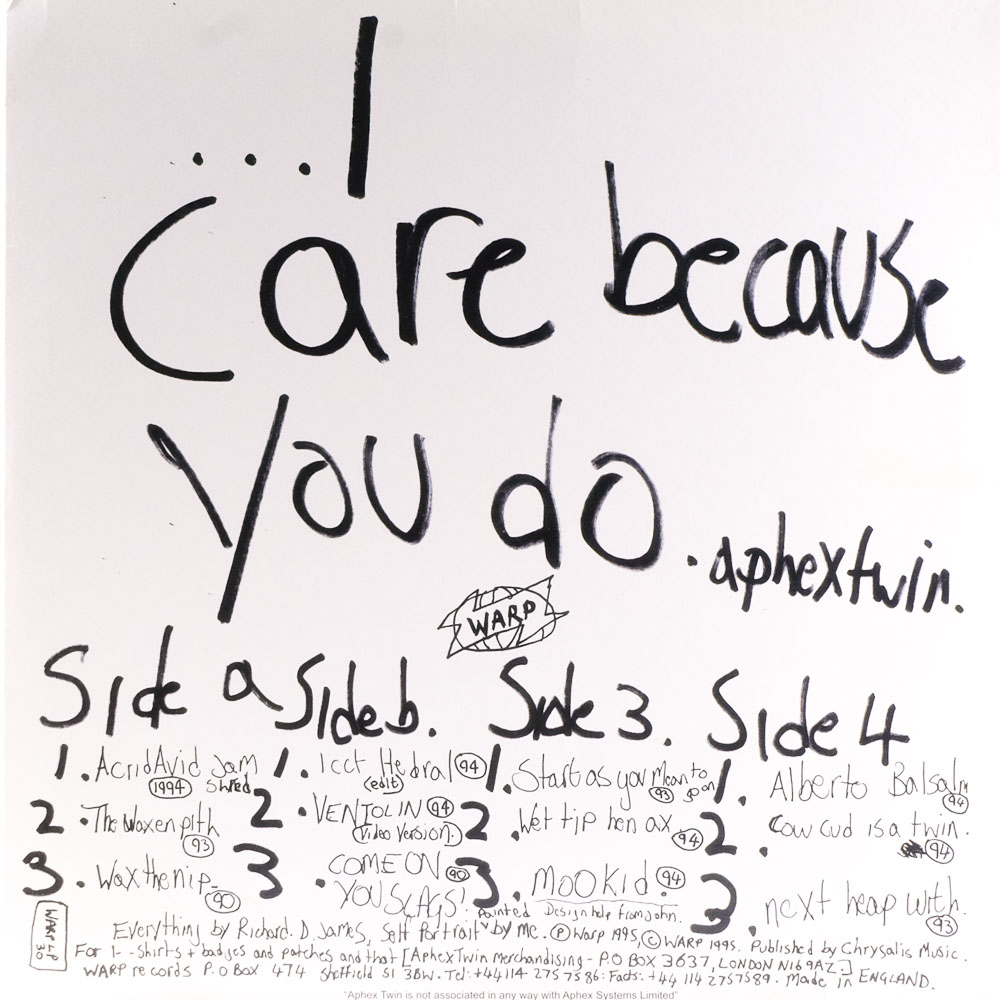 ...I
care because
you do.
aphextwin.
WARP
Side a
1. AcridAvid Jam
Shred 1994
2. The waxen pith
93
3. Wax the nip
90
Side b.
1. Icct Hedral 94
(edit)
2. VENTOLIN 94
(Video Version).
3. COME ON 90
YOU SLAGS!
Side 3.
1. Start as you Mean to
93 go on
2. Wet tip hen ax
94
3. MOOKid. 94
Side 4
1. Alberto Balsalm
94
2. Cow cud is a twin.
94
3. next heap with.
93
WARP LP
30
painted Design help from John.
Everything by Richard. D. James, Self Portrait by me. Ⓟ Warp 1995, © WARP 1995. Published by Chrysalis Music.
For T-Shirts + badges and patches and that [AphexTwin Merchandising - P.O BOX 3637, LONDON N16 9AZ]
WARP records P.O BOX 474 Sheffield S1 3BW. Tel: +44 114 2757586: Facts: +44 114 2757589. Made in ENGLAND.
"Aphex Twin is not associated in any way with Aphex Systems Limited"